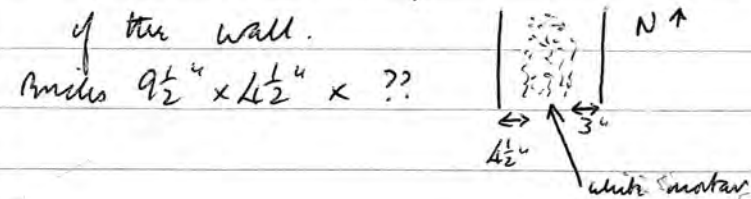 of the wall.
N ↑
Bricks 9½" x 4½" x ??
4½"
3"
white mortar